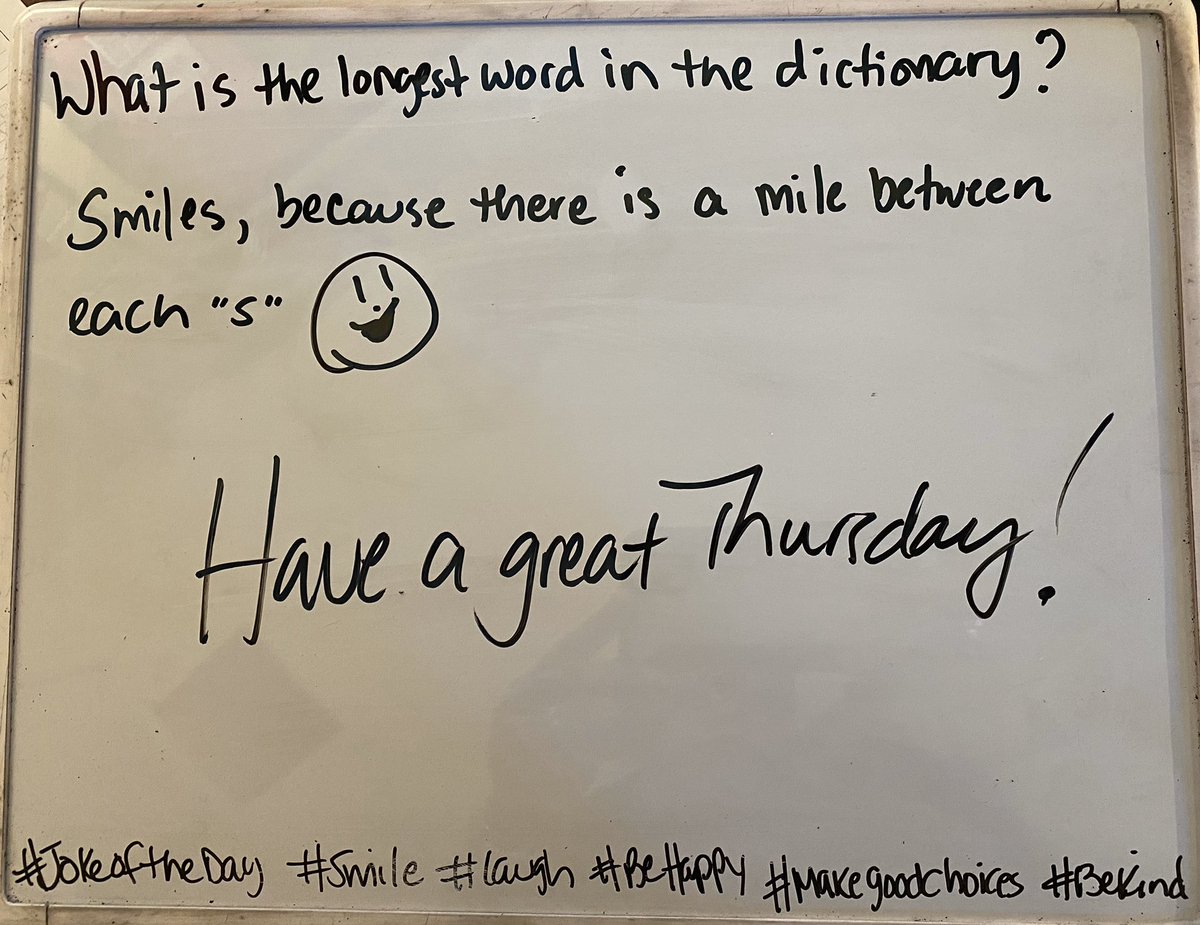 What is the longest word in the dictionary?
Smiles, because there is a mile between
each "s"
Have a great Thursday!
#JokeoftheDay #Smile #laugh #BeHappy #Makegoodchoices #BeKind